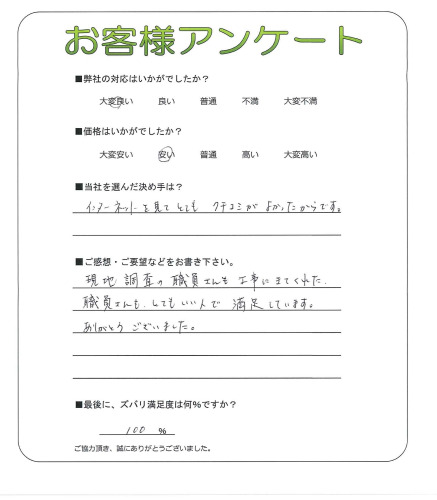 お客様アンケート
■弊社の対応はいかがでしたか？
大変良い 良い 普通 不満 大変不満
■価格はいかがでしたか？
大変安い 安い 普通 高い 大変高い
■当社を選んだ決め手は？
インターネットを見てとても クチコミが よかったからです。
■ご感想・ご要望などをお書き下さい。
現地調査の職員さんも工事にきてくれた、
職員さんも、とてもいい人で 満足しています。
ありがとうございました。
■最後に、ズバリ満足度は何％ですか？
100 ％
ご協力頂き、誠にありがとうございました。